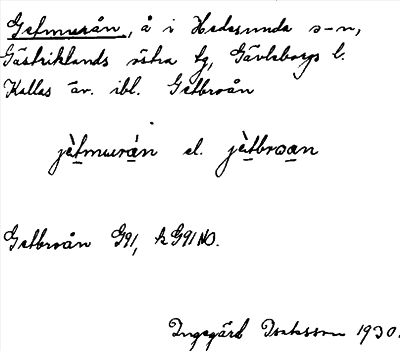 Getmurån, å i Hedesunda s-n,
Gästriklands östra tg, Gävleborgs l.
Kallas äv. ibl. Getbroån
jètmuràn el. jètbroan
Getbroån G91, k G91 NO.
Ingegärd Isaksson 1930.